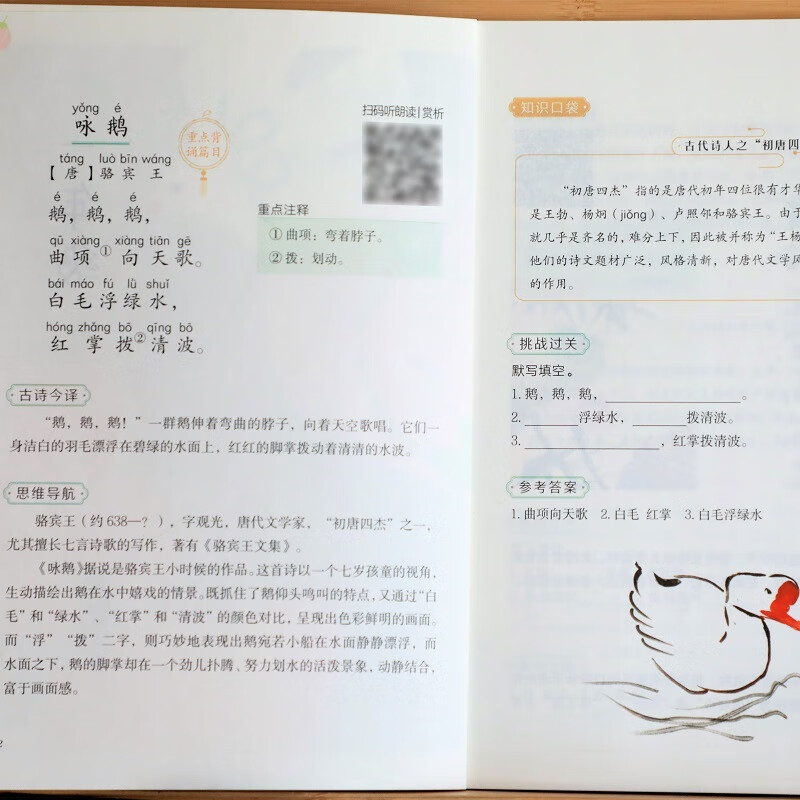 yǒng é
咏 鹅
táng luò bīn wáng
【唐】骆宾王
é é é
鹅，鹅，鹅，
qū xiàng xiàng tiān gē
曲项①向天歌。
bái máo fú lǜ shuǐ
白毛浮绿水，
hóng zhǎng bō qīng bō
红掌拨②清波。
重点背
诵篇目
扫码听朗读|赏析
重点注释
①曲项：弯着脖子。
②拨：划动。
古诗今译
“鹅，鹅，鹅！”一群鹅伸着弯曲的脖子，向着天空歌唱。它们一
身洁白的羽毛漂浮在碧绿的水面上，红红的脚掌拨动着清清的水波。
思维导航
骆宾王（约638—？），字观光，唐代文学家，“初唐四杰”之一，
尤其擅长七言诗歌的写作，著有《骆宾王文集》。
《咏鹅》据说是骆宾王小时候的作品。这首诗以一个七岁孩童的视角，
生动描绘出鹅在水中嬉戏的情景。既抓住了鹅仰头鸣叫的特点，又通过“白
毛”和“绿水”、“红掌”和“清波”的颜色对比，呈现出色彩鲜明的画面。
而“浮”“拨”二字，则巧妙地表现出鹅宛若小船在水面静静漂浮，而
水面之下，鹅的脚掌却在一个劲儿扑腾、努力划水的活泼景象，动静结合，
富于画面感。
2
知识口袋
古代诗人之“初唐四
“初唐四杰”指的是唐代初年四位很有才华
是王勃、杨炯（jiǒng）、卢照邻和骆宾王。由于
就几乎是齐名的，难分上下，因此被并称为“王杨
他们的诗文题材广泛，风格清新，对唐代文学风
的作用。
挑战过关
默写填空。
1.鹅，鹅，鹅，____________。
2.______浮绿水，______拨清波。
3.____________，红掌拨清波。
参考答案
1.曲项向天歌 2.白毛 红掌 3.白毛浮绿水